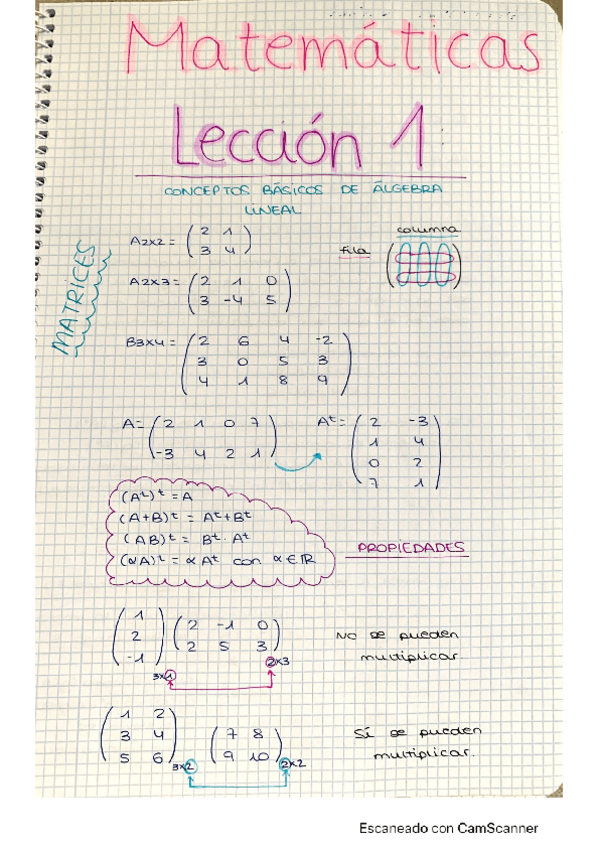 Matemáticas
Lección 1
CONCEPTOS BÁSICOS DE ÁLGEBRA
LINEAL
MATRICES
A2x2 = ( 2 1
3 4 )
columna
fila
A2x3 = ( 2 1 0
3 -4 5 )
B3x4 = ( 2 6 4 -2
3 0 5 3
4 1 8 9 )
A = ( 2 1 0 7
-3 4 2 1 )
At = ( 2 -3
1 4
0 2
7 1 )
(At)t = A
(A+B)t = At+Bt
(AB)t = Bt · At
(αA)t = α At con α ∈ IR
PROPIEDADES
( 1
2
-1 ) 3x1
( 2 -1 0
2 5 3 ) 2x3
NO se pueden
multiplicar.
( 1 2
3 4
5 6 ) 3x2
( 7 8
9 10 ) 2x2
SÍ se pueden
multiplicar.
Escaneado con CamScanner